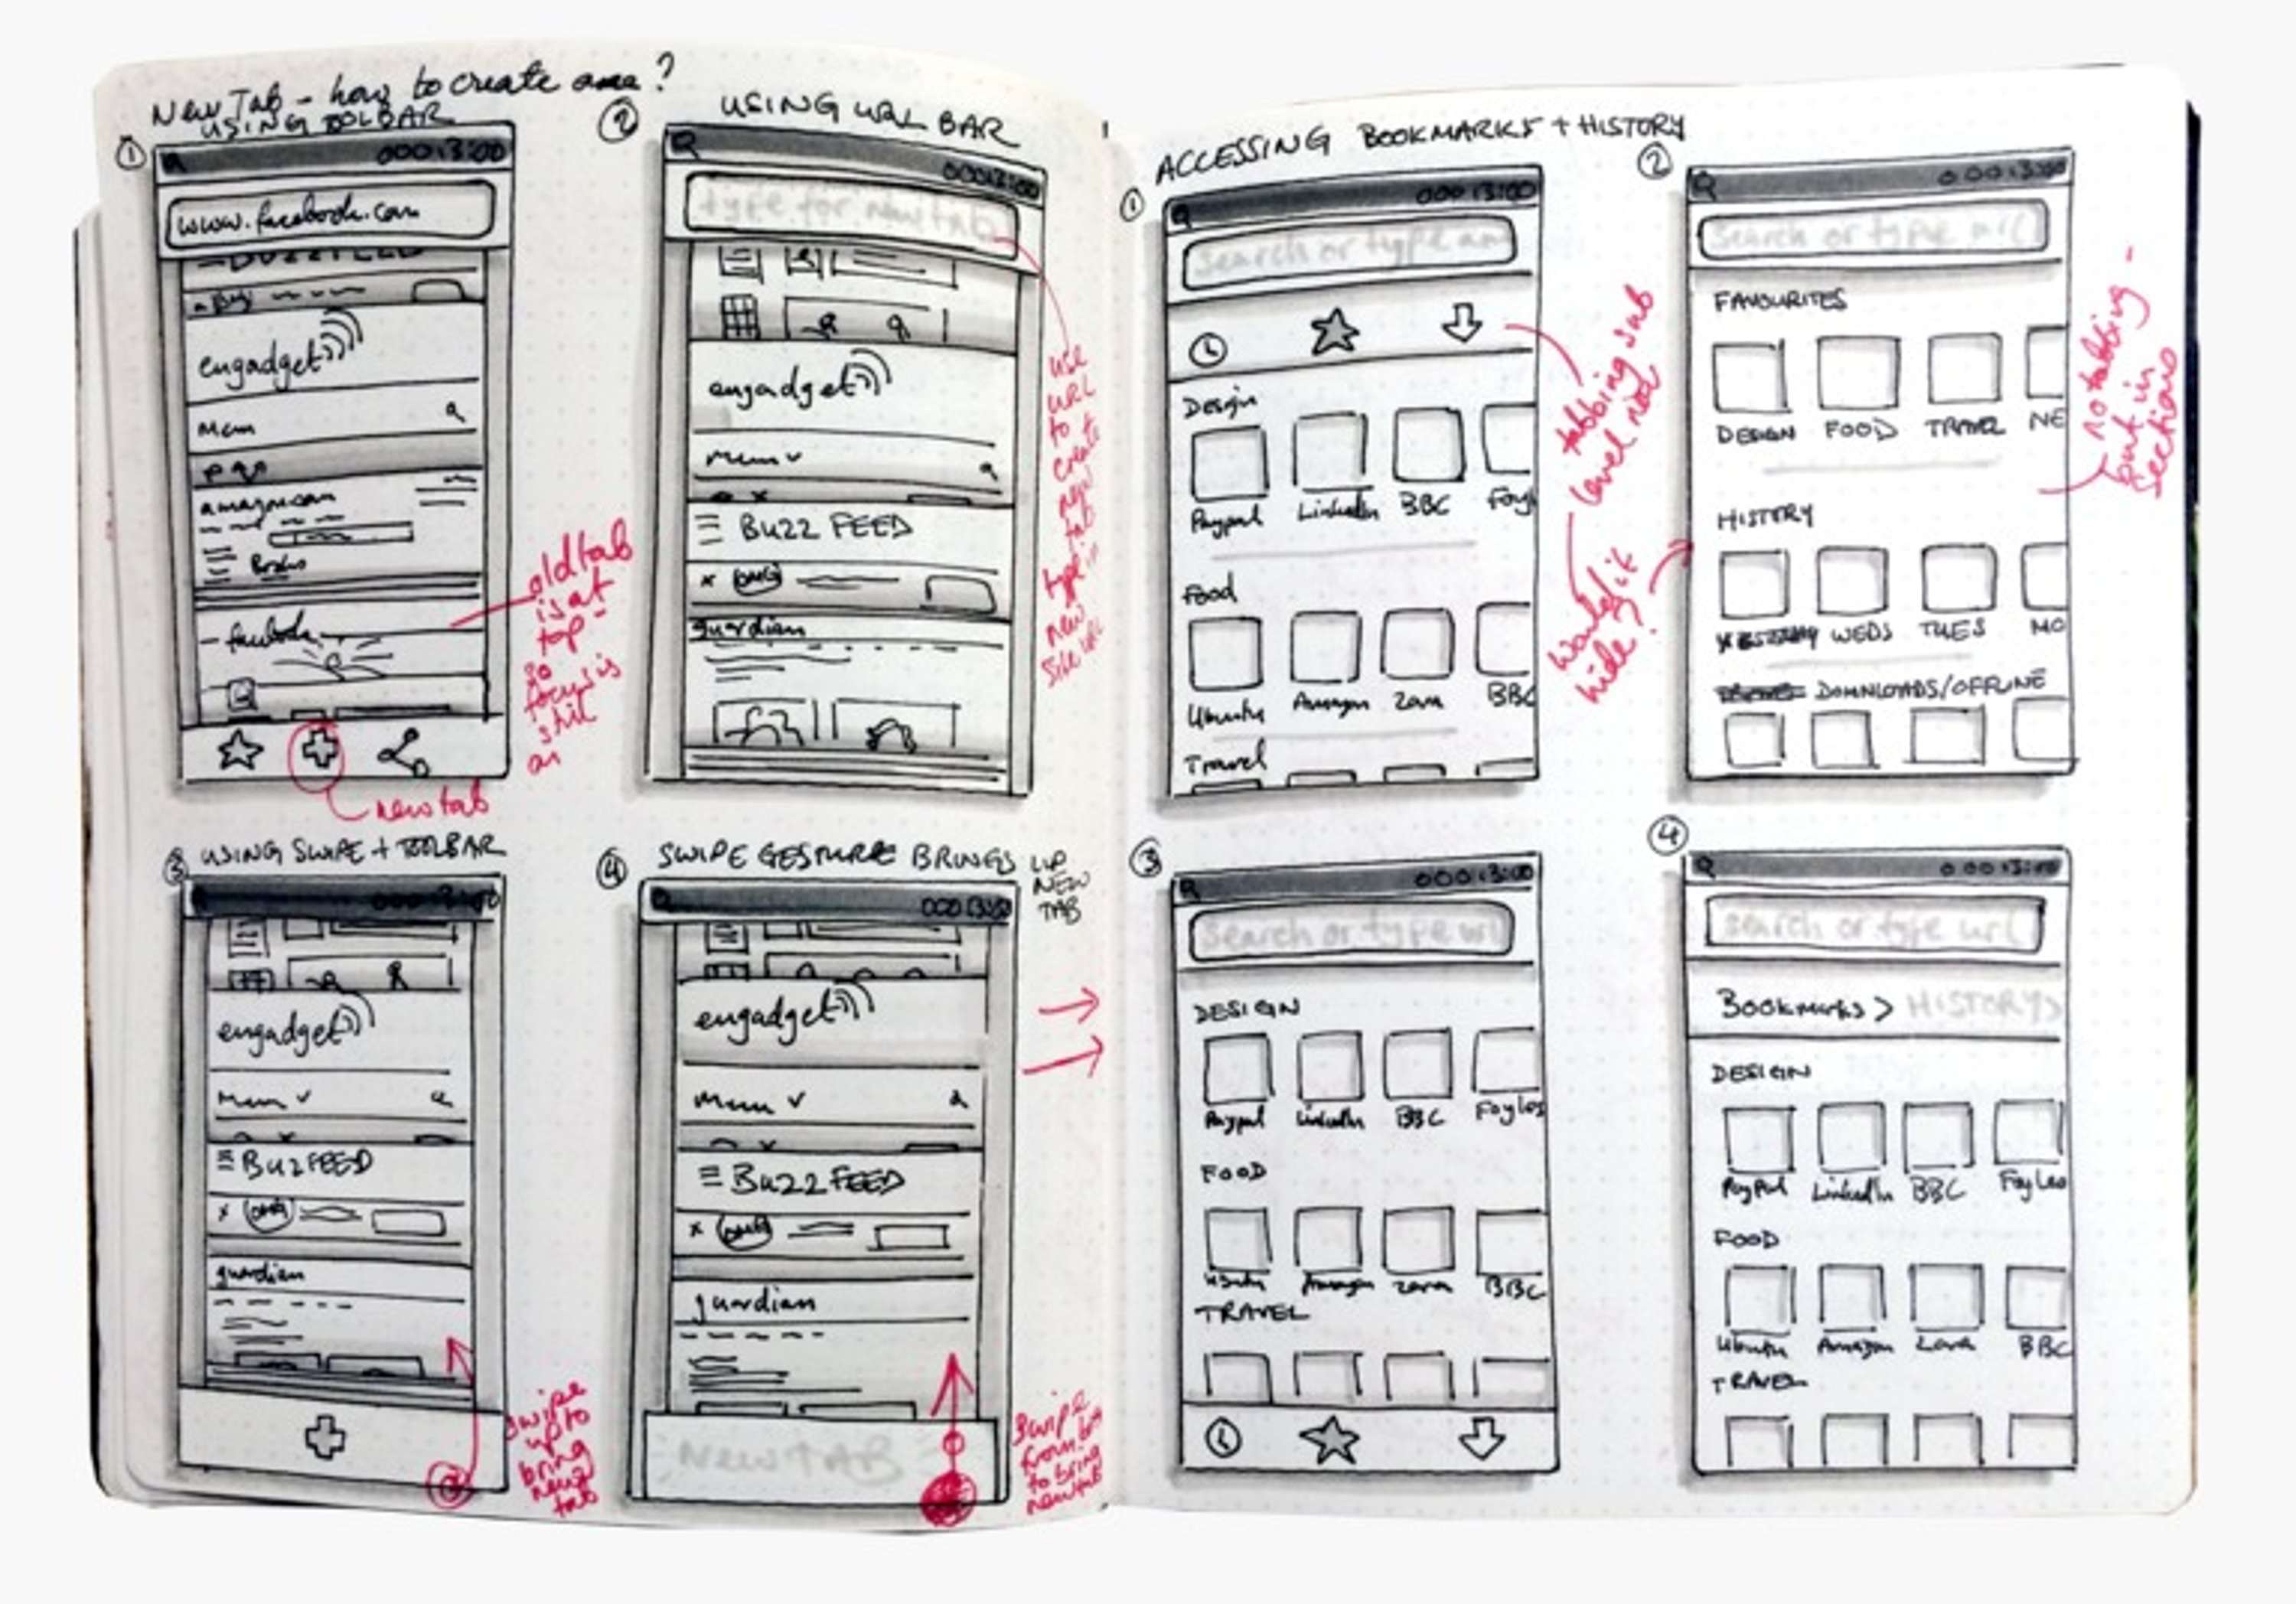 New Tab - how to create one?
① USING TOOLBAR
000 13:00
www.facebook.com
BUZZFEED
engadget
Menu
amazon.com
facebook
old tab
is at
top -
so
focus is
still
on
new tab
② USING URL BAR
000 13:00
type for new tab
engadget
Menu
BUZZ FEED
OMG
guardian
use
URL
to
create
new
tab
type in
new
site URL
③ USING SWIPE + TOOLBAR
000 13:00
engadget
Menu
BUZZFEED
OMG
guardian
swipe
up to
bring
new
tab
④ SWIPE GESTURE BRINGS UP
NEW
TAB
000 13:00
engadget
Menu
BUZZFEED
OMG
guardian
New TAB
swipe
from
to bring
new tab
ACCESSING BOOKMARKS + HISTORY
①
000 13:00
search or type an
Design
Paypal LinkedIn BBC Foyl
Food
Ubuntu Amazon Zara BBC
Travel
tabbing sub
level nav
would it
hide?
②
000 13:00
search or type url
FAVOURITES
DESIGN FOOD TRAVEL NE
HISTORY
YESTERDAY WEDS TUES MO
DOWNLOADS/OFFLINE
no tabbing -
but in
sections
③
000 13:00
search or type url
DESIGN
Paypal LinkedIn BBC Foyles
FOOD
Ubuntu Amazon Zara BBC
TRAVEL
④
000 13:00
search or type url
Bookmarks > HISTORY >
DESIGN
PayPal LinkedIn BBC Foyles
FOOD
Ubuntu Amazon Zara BBC
TRAVEL